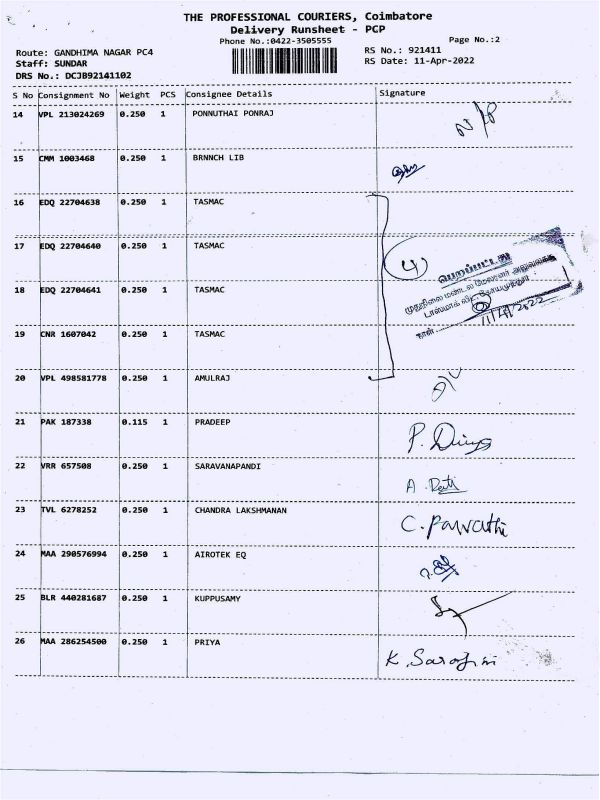 THE PROFESSIONAL COURIERS, Coimbatore
Delivery Runsheet - PCP
Phone No.:0422-3505555 Page No.:2
Route: GANDHIMA NAGAR PC4 RS No.: 921411
Staff: SUNDAR RS Date: 11-Apr-2022
DRS No.: DCJB92141102
S No Consignment No Weight PCS Consignee Details Signature
14 VPL 213024269 0.250 1 PONNUTHAI PONRAJ N/P
15 CMM 1003468 0.250 1 BRNNCH LIB
16 EDQ 22704638 0.250 1 TASMAC
17 EDQ 22704640 0.250 1 TASMAC
4
பெறப்பட்டது
முதுநிலை மண்டல மேலாளர் அலுவலகம்
18 EDQ 22704641 0.250 1 TASMAC
நாள் 11/4/2022
19 CNR 1607042 0.250 1 TASMAC
20 VPL 498581778 0.250 1 AMULRAJ
21 PAK 187338 0.115 1 PRADEEP P.
22 VRR 657508 0.250 1 SARAVANAPANDI A.
23 TVL 6278252 0.250 1 CHANDRA LAKSHMANAN C. Parvathi
24 MAA 290576994 0.250 1 AIROTEK EQ
25 BLR 440281687 0.250 1 KUPPUSAMY
26 MAA 286254500 0.250 1 PRIYA K. Sarojini